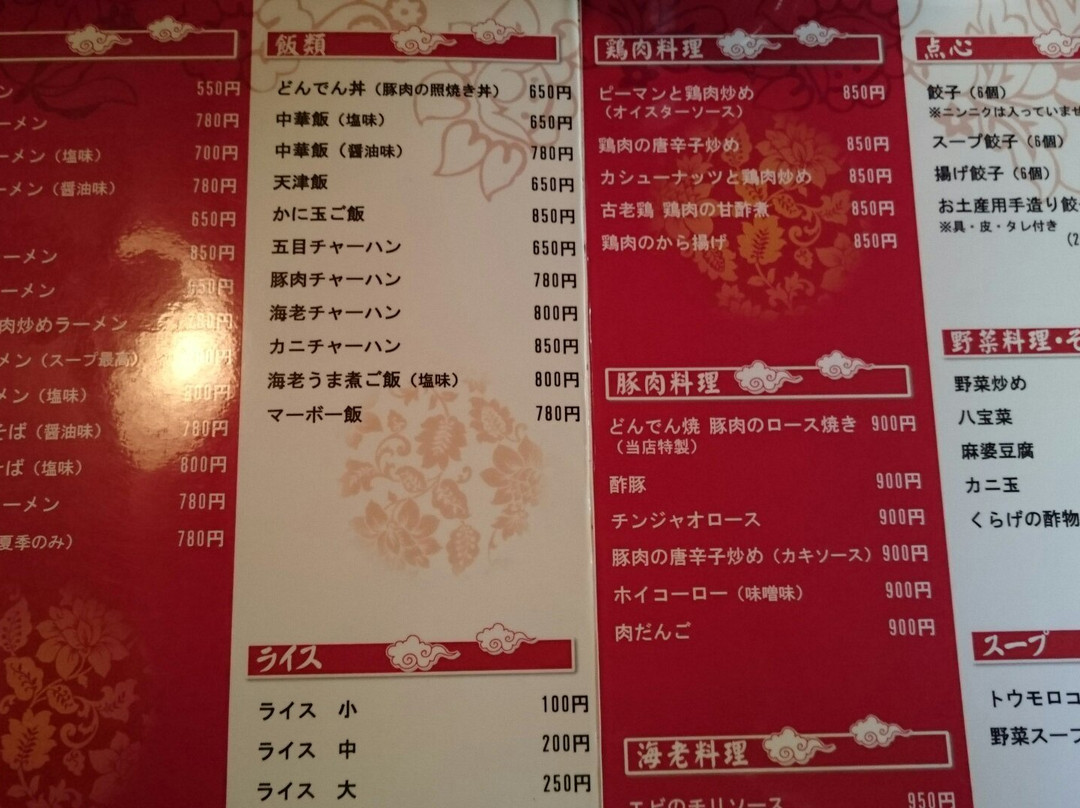 550円
ーメン 780円
ーメン（塩味） 700円
ーメン（醤油味） 780円
650円
ーメン 850円
ーメン
肉炒めラーメン
メン（スープ最高）
メン（塩味）
そば（醤油味） 780円
ば（塩味） 800円
ーメン 780円
夏季のみ） 780円
飯類
どんでん丼（豚肉の照焼き丼） 650円
中華飯（塩味） 650円
中華飯（醤油味） 780円
天津飯 650円
かに玉ご飯 850円
五目チャーハン 650円
豚肉チャーハン 780円
海老チャーハン 800円
カニチャーハン 850円
海老うま煮ご飯（塩味） 800円
マーボー飯 780円
ライス
ライス 小 100円
ライス 中 200円
ライス 大 250円
鶏肉料理
ピーマンと鶏肉炒め 850円
（オイスターソース）
鶏肉の唐辛子炒め 850円
カシューナッツと鶏肉炒め 850円
古老鶏 鶏肉の甘酢煮 850円
鶏肉のから揚げ 850円
豚肉料理
どんでん焼 豚肉のロース焼き 900円
（当店特製）
酢豚 900円
チンジャオロース 900円
豚肉の唐辛子炒め（カキソース） 900円
ホイコーロー（味噌味） 900円
肉だんご 900円
海老料理
エビのチリソース 950円
点心
餃子（6個）
※ニンニクは入っていませ
スープ餃子（6個）
揚げ餃子（6個）
お土産用手造り餃
※具・皮・タレ付き
（2
野菜料理・そ
野菜炒め
八宝菜
麻婆豆腐
カニ玉
くらげの酢物
スープ
トウモロコ
野菜スープ